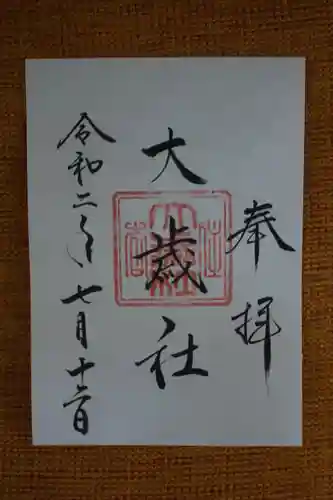 奉拝
大歳社
令和二年七月十二日